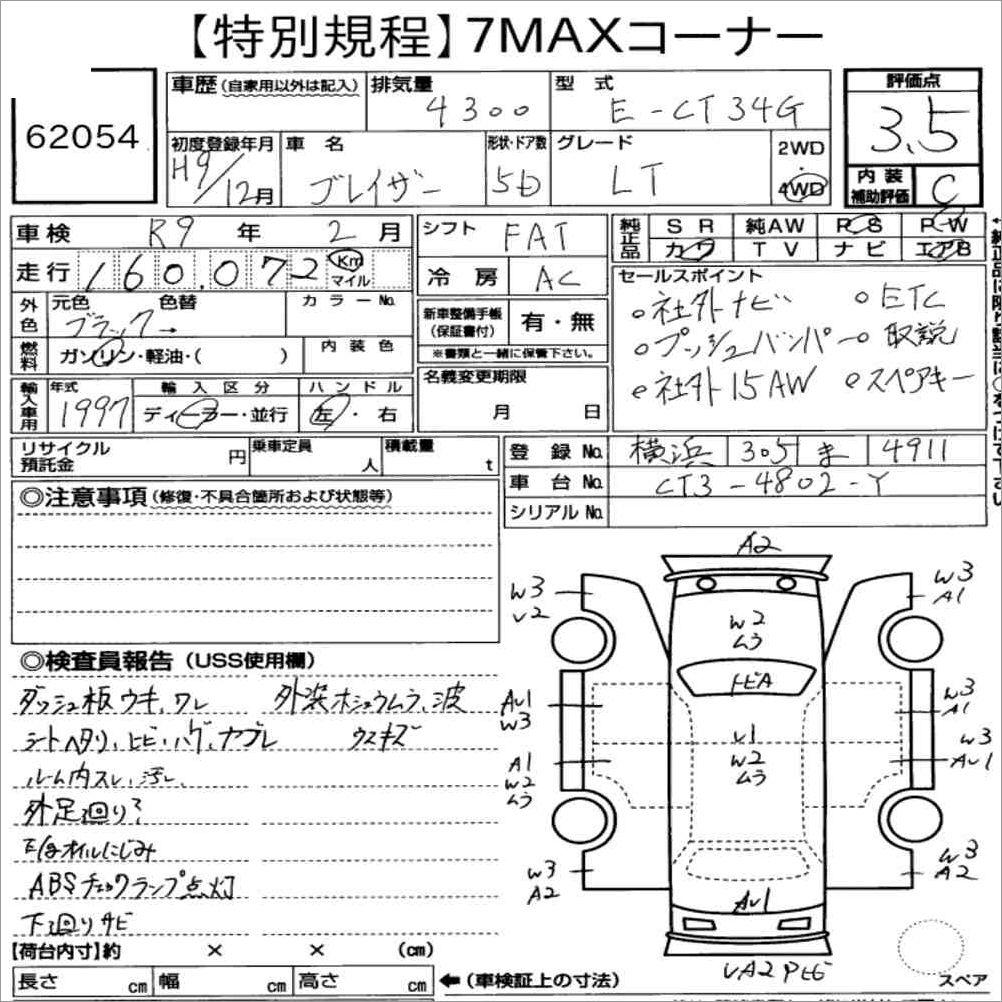 【特別規程】7MAXコーナー
62054
車歴(自家用以外は記入)
排気量
4300
型式
E-CT34G
評価点
3.5
初度登録年月
H9/12月
車名
ブレイザー
形状・ドア数
5D
グレード
LT
2WD
・
4WD
内装
補助評価
C
車検
R9年2月
走行
160.072
Km
マイル
シフト
FAT
冷房
AC
純正品
SR
純AW
PS
PW
カワ
TV
ナビ
エアB
外色
元色
色替
カラーNo.
ブラック→
燃料
ガソリン・軽油・( )
内装色
新車整備手帳
(保証書付)
有・無
※書類と一緒に保管下さい。
セールスポイント
○社外ナビ ○ETC
○プッシュバンパー・取説
○社外15AW ○スペアキー
輸入車用
年式
1997
輸入区分
ディーラー・並行
ハンドル
左・右
名義変更期限
月 日
リサイクル
預託金
円
乗車定員
人
積載量
t
登録No.
横浜 305 ま 4911
車台No.
CT3-4802-Y
シリアルNo.
◎注意事項(修復・不具合箇所および状態等)
◎検査員報告(USS使用欄)
ダッシュ板ウキ,ワレ
外装ホシュウムラ,波
シートヘタリ,ヒビ,ハゲ,ナブレ
ウスキズ
ルーム内スレ,汚レ
外足廻リ
下廻オイルにじみ
ABSチェックランプ点灯
下廻りサビ
A2
W3
V2
W3
A1
W2
ムラ
トビA
AU1
W3
W3
A1
V1
W2
ムラ
W3
AU1
A1
W2
ムラ
W3
A2
W3
A2
AU1
VA2
スペア
【荷台内寸】約 × × (cm)
長さ cm
幅 cm
高さ cm
←(車検証上の寸法)